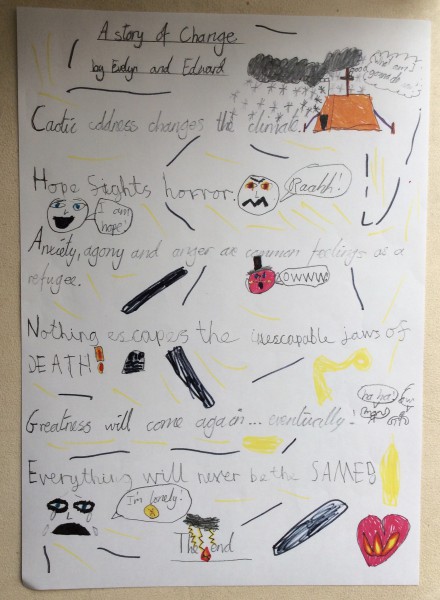 A story of Change
by Evelyn and Edward
Caotic oddness changes the climate.
Hope fights horror.
Raahh!
I am hope!
Anxiety, agony and anger are common feelings as a
refugee.
OWWW
Nothing escapes the inescapable jaws of
DEATH!
ha ha!
Greatness will come again... eventurally.
Everything will never be the SAME!
I'm lonely!
The end